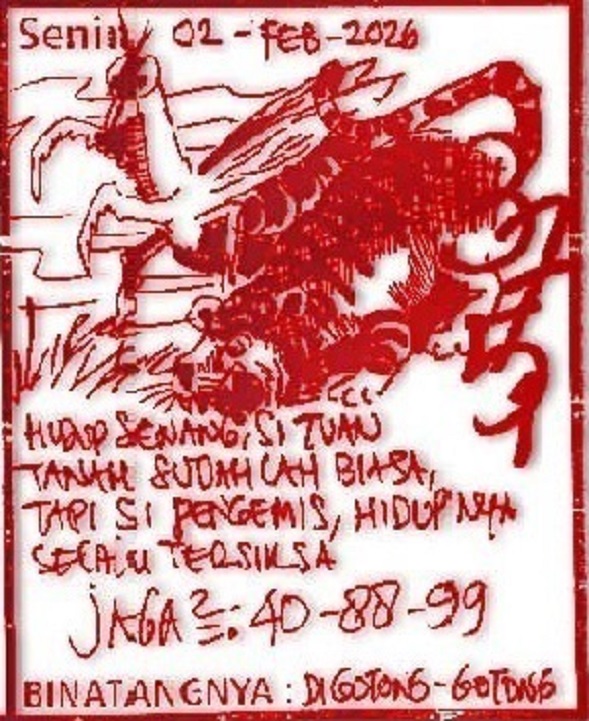 Senin 02-FEB-2026
HIDUP SENANG, SI TUAN
TANAH SUDAHLAH BIASA,
TAPI SI PENGEMIS, HIDUPNYA
SELALU TERSIKSA
JAGA2: 40-88-99
BINATANGNYA: DIGOTONG-GOTONG